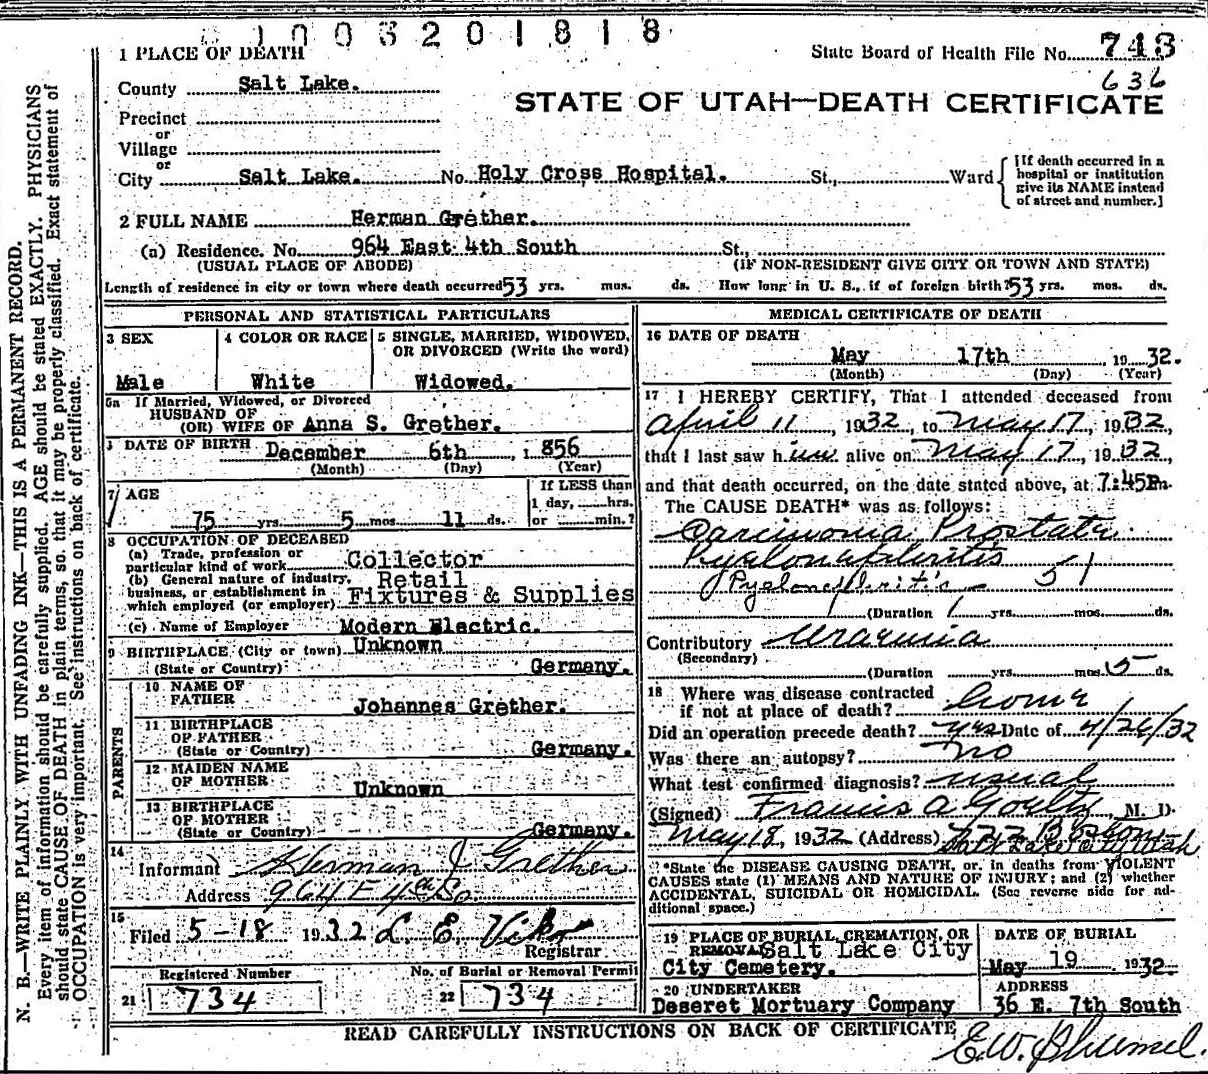 1003201818
1 PLACE OF DEATH
State Board of Health File No. 743
636
County Salt Lake.
STATE OF UTAH—DEATH CERTIFICATE
Precinct
or
Village
or
City Salt Lake. No. Holy Cross Hospital. St., Ward
[If death occurred in a
hospital or institution
give its NAME instead
of street and number.]
2 FULL NAME Herman Grether.
(a) Residence. No. 964 East 4th South St.,
(USUAL PLACE OF ABODE) (IF NON-RESIDENT GIVE CITY OR TOWN AND STATE)
Length of residence in city or town where death occurred 53 yrs. mos. ds. How long in U. S., if of foreign birth? 53 yrs. mos. ds.
PERSONAL AND STATISTICAL PARTICULARS
3 SEX
Male
4 COLOR OR RACE
White
5 SINGLE, MARRIED, WIDOWED,
OR DIVORCED (Write the word)
Widowed.
5a If Married, Widowed, or Divorced
HUSBAND OF
(OR) WIFE OF Anna S. Grether.
DATE OF BIRTH December 6th, 1856
(Month) (Day) (Year)
7 AGE
75 yrs. 5 mos. 11 ds.
If LESS than
1 day, hrs.
or min.?
8 OCCUPATION OF DECEASED
(a) Trade, profession or
particular kind of work Collector
(b) General nature of industry, Retail
business, or establishment in
which employed (or employer) Fixtures & Supplies
(c) Name of Employer Modern Electric.
9 BIRTHPLACE (City or town) Unknown
(State or Country) Germany.
PARENTS
10 NAME OF
FATHER Johannes Grether.
11 BIRTHPLACE
OF FATHER
(State or Country) Germany.
12 MAIDEN NAME
OF MOTHER Unknown
13 BIRTHPLACE
OF MOTHER
(State or Country) Germany.
14
Informant Herman J Grether
Address 964 E 4th So
15
Filed 5-18 1932 L. E. Viko
Registrar
Registered Number
21 734
No. of Burial or Removal Permit
22 734
MEDICAL CERTIFICATE OF DEATH
16 DATE OF DEATH
May 17th, 1932.
(Month) (Day) (Year)
17 I HEREBY CERTIFY, That I attended deceased from
April 11, 1932, to May 17, 1932,
that I last saw him alive on May 17, 1932,
and that death occurred, on the date stated above, at 7:45P m.
The CAUSE DEATH* was as follows:
Carcinoma Prostate
Pyelonephritis
Pyelonephritis 51
(Duration 1 yrs. mos. ds.
Contributory Uraemia
(Secondary)
(Duration yrs. mos. 5 ds.
18 Where was disease contracted
if not at place of death? home
Did an operation precede death? yes Date of 4/26/32
Was there an autopsy? No
What test confirmed diagnosis? usual
(Signed) Francis A Goeltz, M. D.
May 18, 1932 (Address) 722 Boston
Salt Lake City Utah
*State the DISEASE CAUSING DEATH, or in deaths from VIOLENT
CAUSES state (1) MEANS AND NATURE OF INJURY; and (2) whether
ACCIDENTAL, SUICIDAL OR HOMICIDAL. (See reverse side for ad-
ditional space.)
19 PLACE OF BURIAL, CREMATION, OR
REMOVAL Salt Lake City
City Cemetery.
DATE OF BURIAL
May 19 1932.
20 UNDERTAKER
Deseret Mortuary Company
ADDRESS
36 E. 7th South
READ CAREFULLY INSTRUCTIONS ON BACK OF CERTIFICATE
E.W.
N. B.—WRITE PLAINLY WITH UNFADING INK—THIS IS A PERMANENT RECORD.
Every item of information should be carefully supplied. AGE should be stated EXACTLY. PHYSICIANS
should state CAUSE OF DEATH in plain terms, so that it may be properly classified. Exact statement of
OCCUPATION is very important. See instructions on back of certificate.